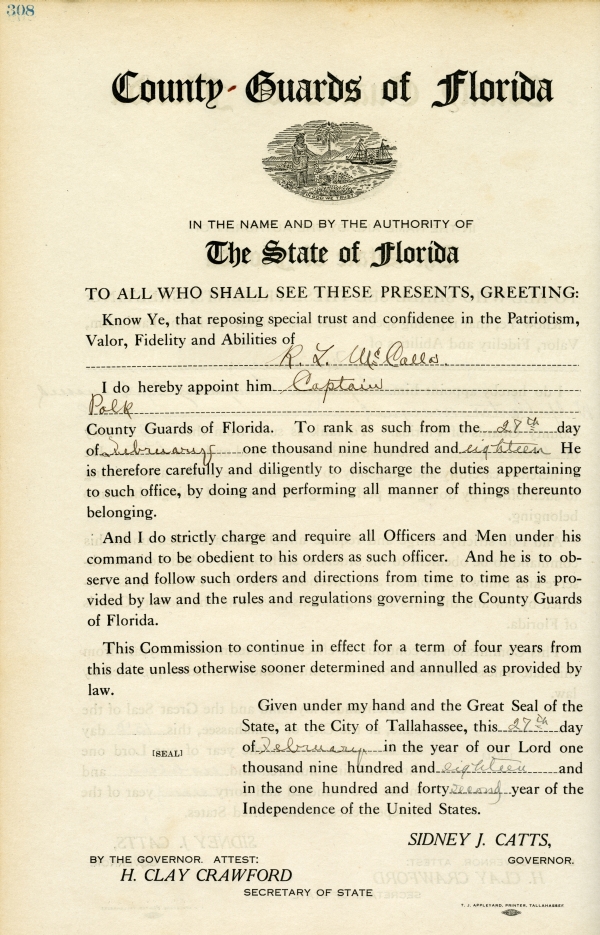 308
County-Guards of Florida
IN GOD WE TRUST
IN THE NAME AND BY THE AUTHORITY OF
The State of Florida
TO ALL WHO SHALL SEE THESE PRESENTS, GREETING:
Know Ye, that reposing special trust and confidenee in the Patriotism,
Valor, Fidelity and Abilities of
R. L. McCalls.
I do hereby appoint him Captain
Polk
County Guards of Florida. To rank as such from the 27th day
of February one thousand nine hundred and eighteen He
is therefore carefully and diligently to discharge the duties appertaining
to such office, by doing and performing all manner of things thereunto
belonging.
And I do strictly charge and require all Officers and Men under his
command to be obedient to his orders as such officer. And he is to ob-
serve and follow such orders and directions from time to time as is pro-
vided by law and the rules and regulations governing the County Guards
of Florida.
This Commission to continue in effect for a term of four years from
this date unless otherwise sooner determined and annulled as provided by
law.
Given under my hand and the Great Seal of the
State, at the City of Tallahassee, this 27th day
[SEAL] of February in the year of our Lord one
thousand nine hundred and eighteen and
in the one hundred and forty second year of the
Independence of the United States.
SIDNEY J. CATTS,
BY THE GOVERNOR. ATTEST: GOVERNOR.
H. CLAY CRAWFORD
SECRETARY OF STATE
T. J. APPLEYARD, PRINTER, TALLAHASSEE